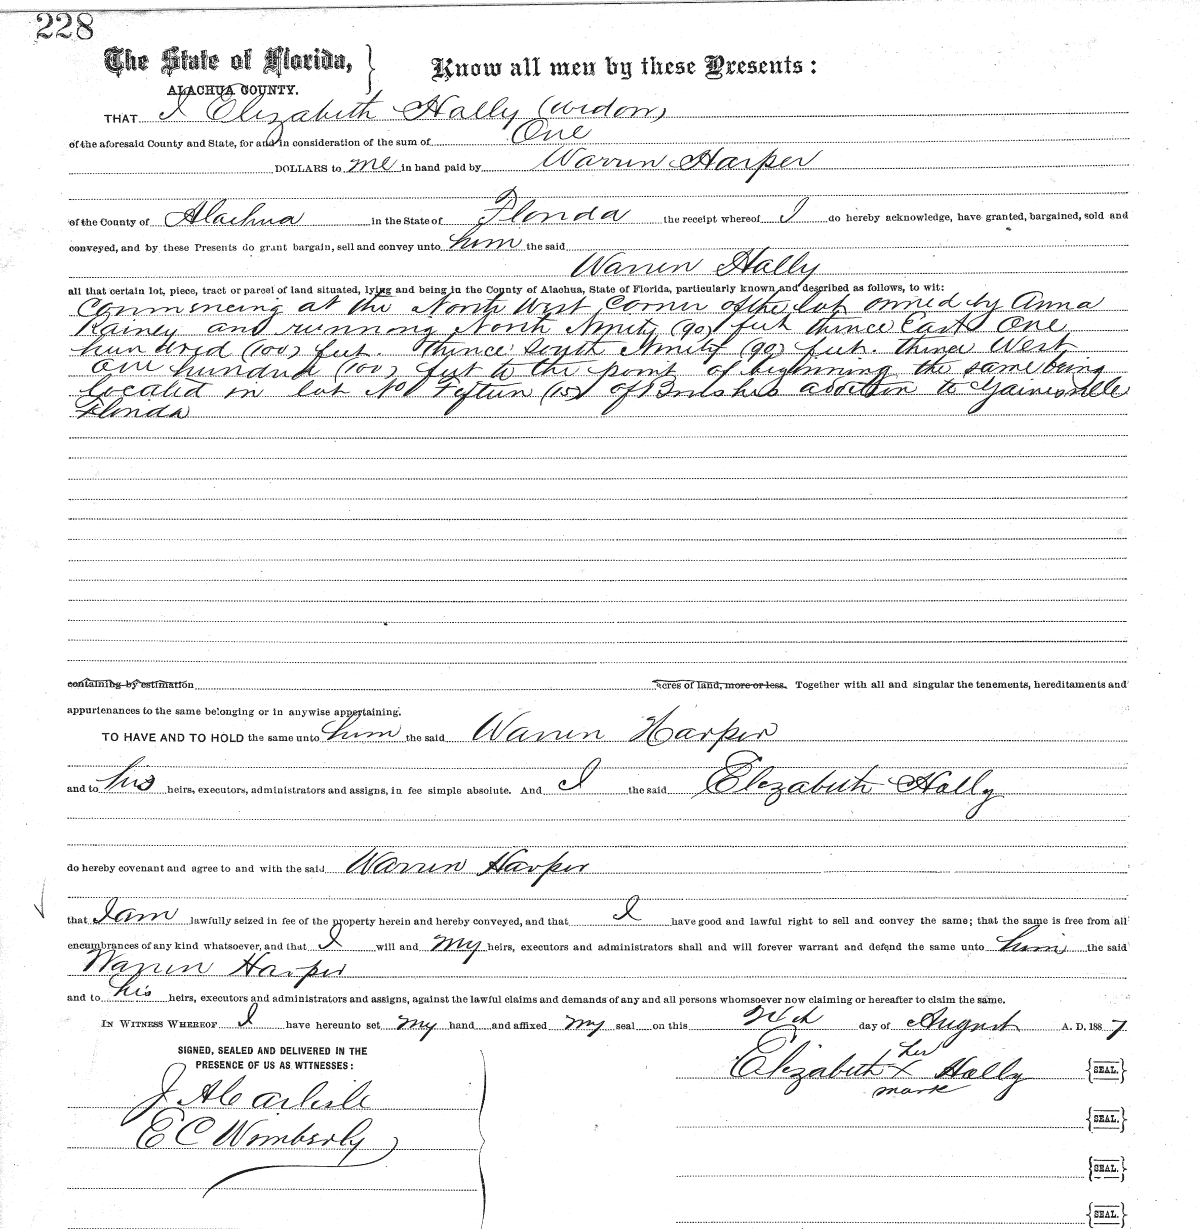 228
The State of Florida, } Know all men by these Presents:
ALACHUA COUNTY.
THAT I Elizabeth Hally (widow)
of the aforesaid County and State, for and in consideration of the sum of One
DOLLARS to me in hand paid by Warren Harper
of the County of Alachua in the State of Florida the receipt whereof I do hereby acknowledge, have granted, bargained, sold and
conveyed, and by these Presents do grant bargain, sell and convey unto him the said
Warren Hally
all that certain lot, piece, tract or parcel of land situated, lying and being in the County of Alachua, State of Florida, particularly known and described as follows, to wit:
Commencing at the North West Corner of the lot owned by Anna
Rainey and running North Ninety (90) feet thence East One
hundred (100) feet. thence South Ninety (90) feet. thence West
one hundred (100) feet to the point of beginning the same being
located in lot No Fifteen (15) of Brushs addition to Gainesville
Florida
containing by estimation acres of land, more or less. Together with all and singular the tenements, hereditaments and
appurtenances to the same belonging or in anywise appertaining.
TO HAVE AND TO HOLD the same unto him the said Warren Harper
and to his heirs, executors, administrators and assigns, in fee simple absolute. And I the said Elizabeth Hally
do hereby covenant and agree to and with the said Warren Harper
that I am lawfully seized in fee of the property herein and hereby conveyed, and that I have good and lawful right to sell and convey the same; that the same is free from all
encumbrances of any kind whatsoever, and that I will and my heirs, executors and administrators shall and will forever warrant and defend the same unto him the said
Warren Harper
and to his heirs, executors and administrators and assigns, against the lawful claims and demands of any and all persons whomsoever now claiming or hereafter to claim the same.
IN WITNESS WHEREOF I have hereunto set my hand and affixed my seal on this day of August A. D. 1887
SIGNED, SEALED AND DELIVERED IN THE
PRESENCE OF US AS WITNESSES:
Elizabeth her X mark Hally {SEAL.}
J A Carlisle
{SEAL.}
E C Wimberly
{SEAL.}
{SEAL.}